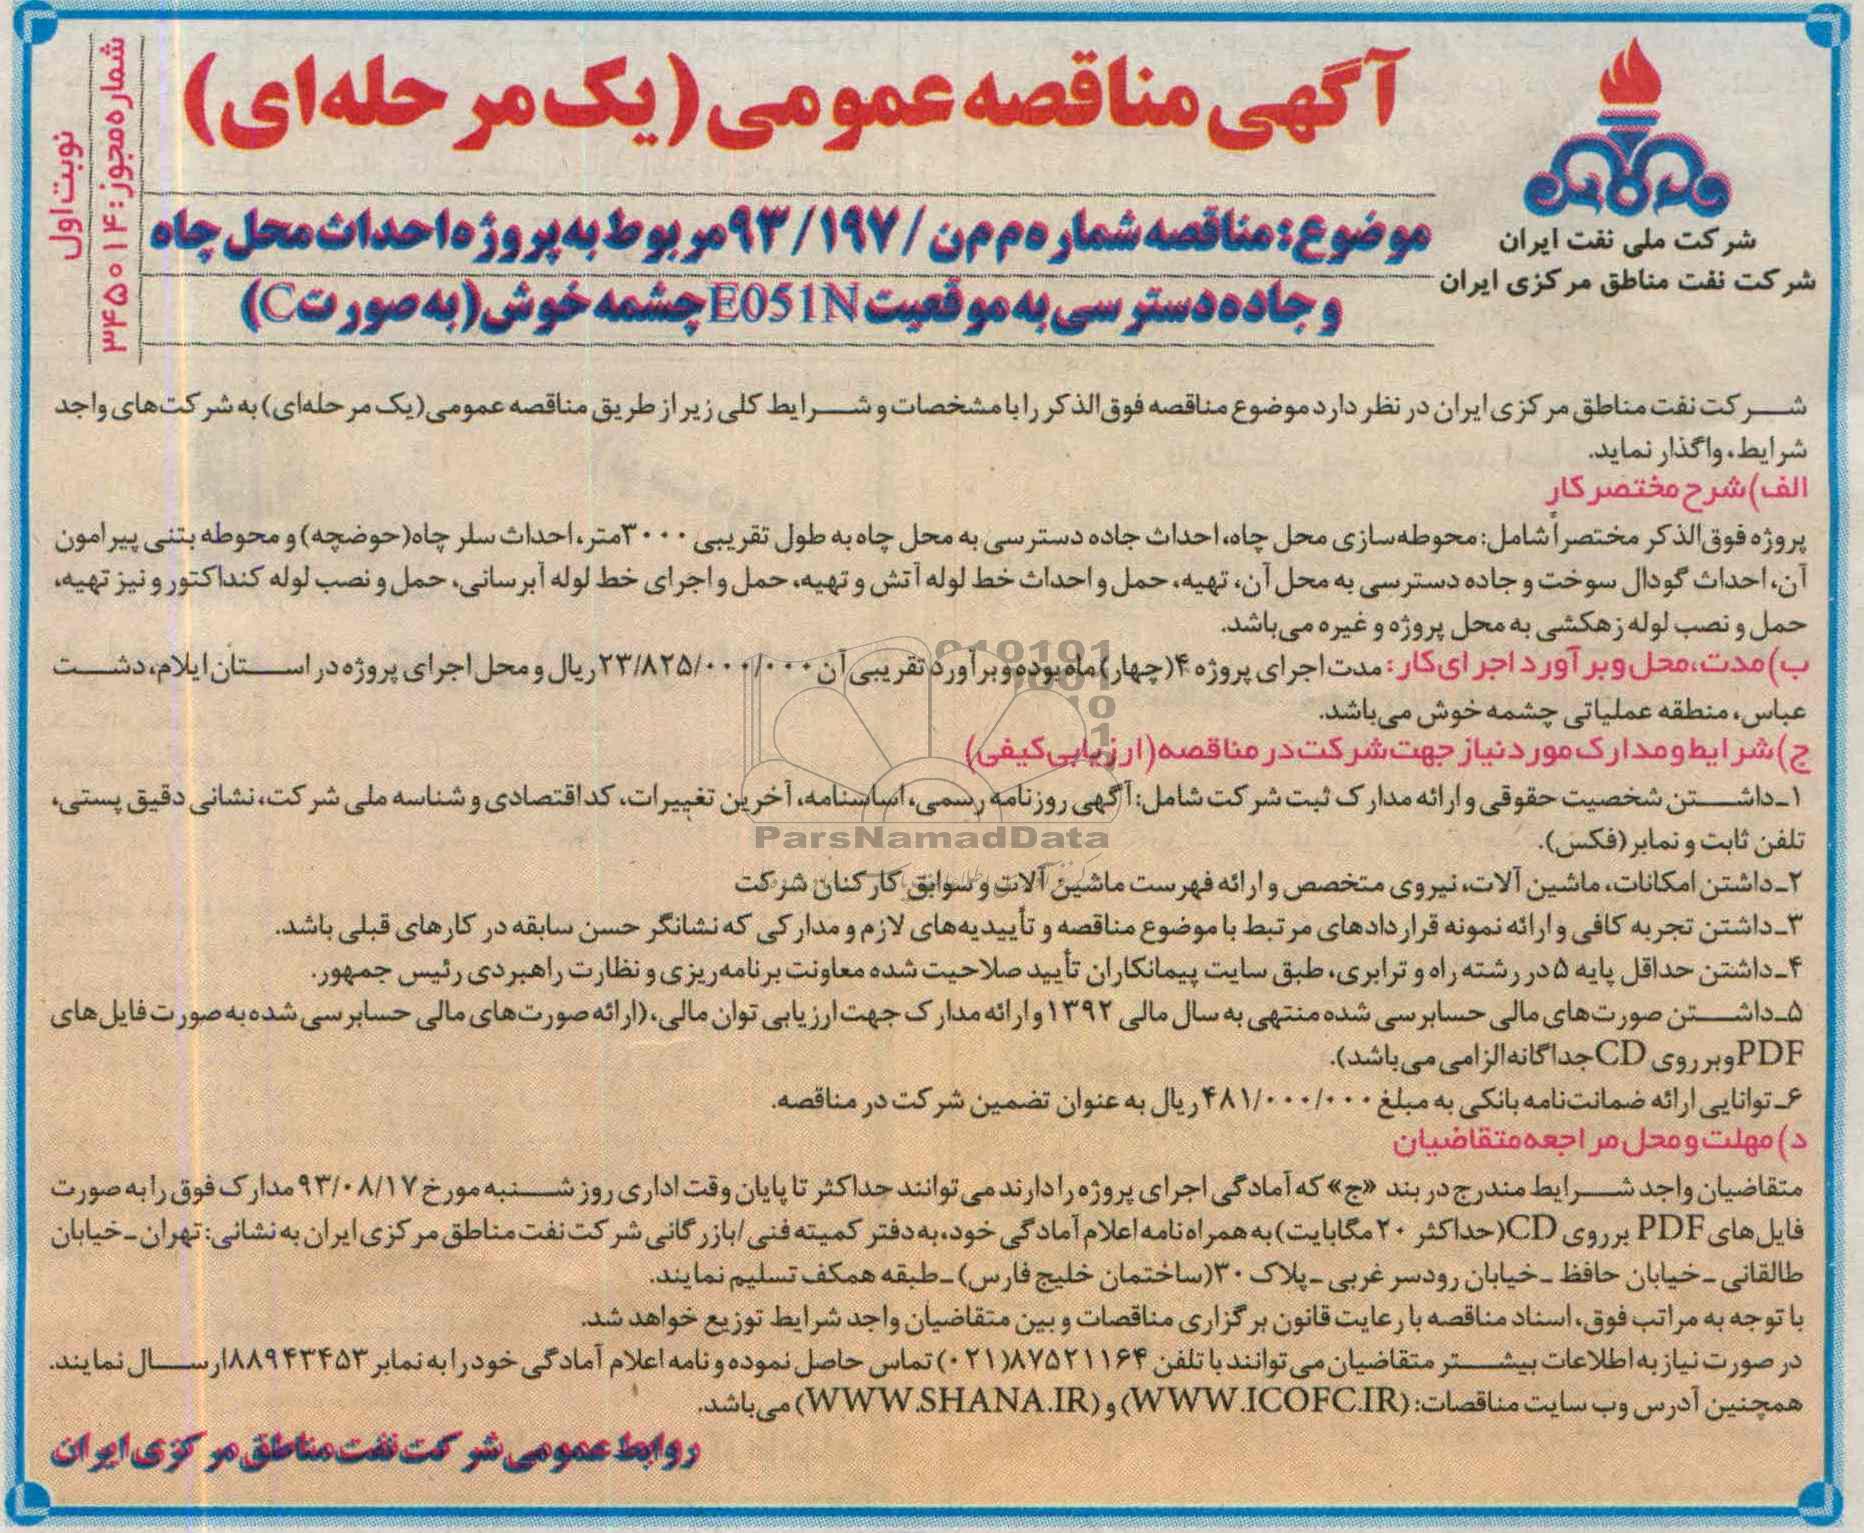 آگهی مناقصه عمومی (یک مرحله‌ای)
شرکت ملی نفت ایران
شرکت نفت مناطق مرکزی ایران
شماره مجوز: ۳۴۵۰۱۴
نوبت اول
موضوع: مناقصه شماره م‌م‌ن / ۹۳/۱۹۷ مربوط به پروژه احداث محل چاه
و جاده دسترسی به موقعیت E051N چشمه خوش (به صورت C)
شرکت نفت مناطق مرکزی ایران در نظر دارد موضوع مناقصه فوق‌الذکر را با مشخصات و شرایط کلی زیر از طریق مناقصه عمومی (یک مرحله‌ای) به شرکت‌های واجد
شرایط، واگذار نماید.
الف) شرح مختصر کار
پروژه فوق‌الذکر مختصراً شامل: محوطه‌سازی محل چاه، احداث جاده دسترسی به محل چاه به طول تقریبی ۳۰۰۰ متر، احداث سلر چاه (حوضچه) و محوطه بتنی پیرامون
آن، احداث گودال سوخت و جاده دسترسی به محل آن، تهیه، حمل و احداث خط لوله آتش و تهیه، حمل و اجرای خط لوله آبرسانی، حمل و نصب لوله کنداکتور و نیز تهیه،
حمل و نصب لوله زهکشی به محل پروژه و غیره می‌باشد.
ب) مدت، محل و برآورد اجرای کار: مدت اجرای پروژه ۴ (چهار) ماه بوده و برآورد تقریبی آن ۲۳/۸۲۵/۰۰۰/۰۰۰ ریال و محل اجرای پروژه در استان ایلام، دشت
عباس، منطقه عملیاتی چشمه خوش می‌باشد.
ج) شرایط و مدارک مورد نیاز جهت شرکت در مناقصه (ارزیابی کیفی)
۱ـ داشتن شخصیت حقوقی و ارائه مدارک ثبت شرکت شامل: آگهی روزنامه رسمی، اساسنامه، آخرین تغییرات، کد اقتصادی و شناسه ملی شرکت، نشانی دقیق پستی،
تلفن ثابت و نمابر (فکس).
ParsNamadData
۲ـ داشتن امکانات، ماشین آلات، نیروی متخصص و ارائه فهرست ماشین آلات و سوابق کارکنان شرکت
۳ـ داشتن تجربه کافی و ارائه نمونه قراردادهای مرتبط با موضوع مناقصه و تأییدیه‌های لازم و مدارکی که نشانگر حسن سابقه در کارهای قبلی باشد.
۴ـ داشتن حداقل پایه ۵ در رشته راه و ترابری، طبق سایت پیمانکاران تأیید صلاحیت شده معاونت برنامه‌ریزی و نظارت راهبردی رئیس جمهور.
۵ـ داشتن صورت‌های مالی حسابرسی شده منتهی به سال مالی ۱۳۹۲ و ارائه مدارک جهت ارزیابی توان مالی، (ارائه صورت‌های مالی حسابرسی شده به صورت فایل‌های
PDF و بر روی CD جداگانه الزامی می‌باشد).
۶ـ توانایی ارائه ضمانت‌نامه بانکی به مبلغ ۴۸۱/۰۰۰/۰۰۰ ریال به عنوان تضمین شرکت در مناقصه.
د) مهلت و محل مراجعه متقاضیان
متقاضیان واجد شرایط مندرج در بند «ج» که آمادگی اجرای پروژه را دارند می‌توانند حداکثر تا پایان وقت اداری روز شنبه مورخ ۹۳/۰۸/۱۷ مدارک فوق را به صورت
فایل‌های PDF بر روی CD (حداکثر ۲۰ مگابایت) به همراه نامه اعلام آمادگی خود، به دفتر کمیته فنی/بازرگانی شرکت نفت مناطق مرکزی ایران به نشانی: تهران ـ خیابان
طالقانی ـ خیابان حافظ ـ خیابان رودسر غربی ـ پلاک ۳۰ (ساختمان خلیج فارس) ـ طبقه همکف تسلیم نمایند.
با توجه به مراتب فوق، اسناد مناقصه با رعایت قانون برگزاری مناقصات و بین متقاضیان واجد شرایط توزیع خواهد شد.
در صورت نیاز به اطلاعات بیشتر متقاضیان می‌توانند با تلفن ۸۷۵۲۱۱۶۴ (۰۲۱) تماس حاصل نموده و نامه اعلام آمادگی خود را به نمابر ۸۸۹۴۳۴۵۳ ارسال نمایند.
همچنین آدرس وب سایت مناقصات: (WWW.ICOFC.IR) و (WWW.SHANA.IR) می‌باشد.
روابط عمومی شرکت نفت مناطق مرکزی ایران